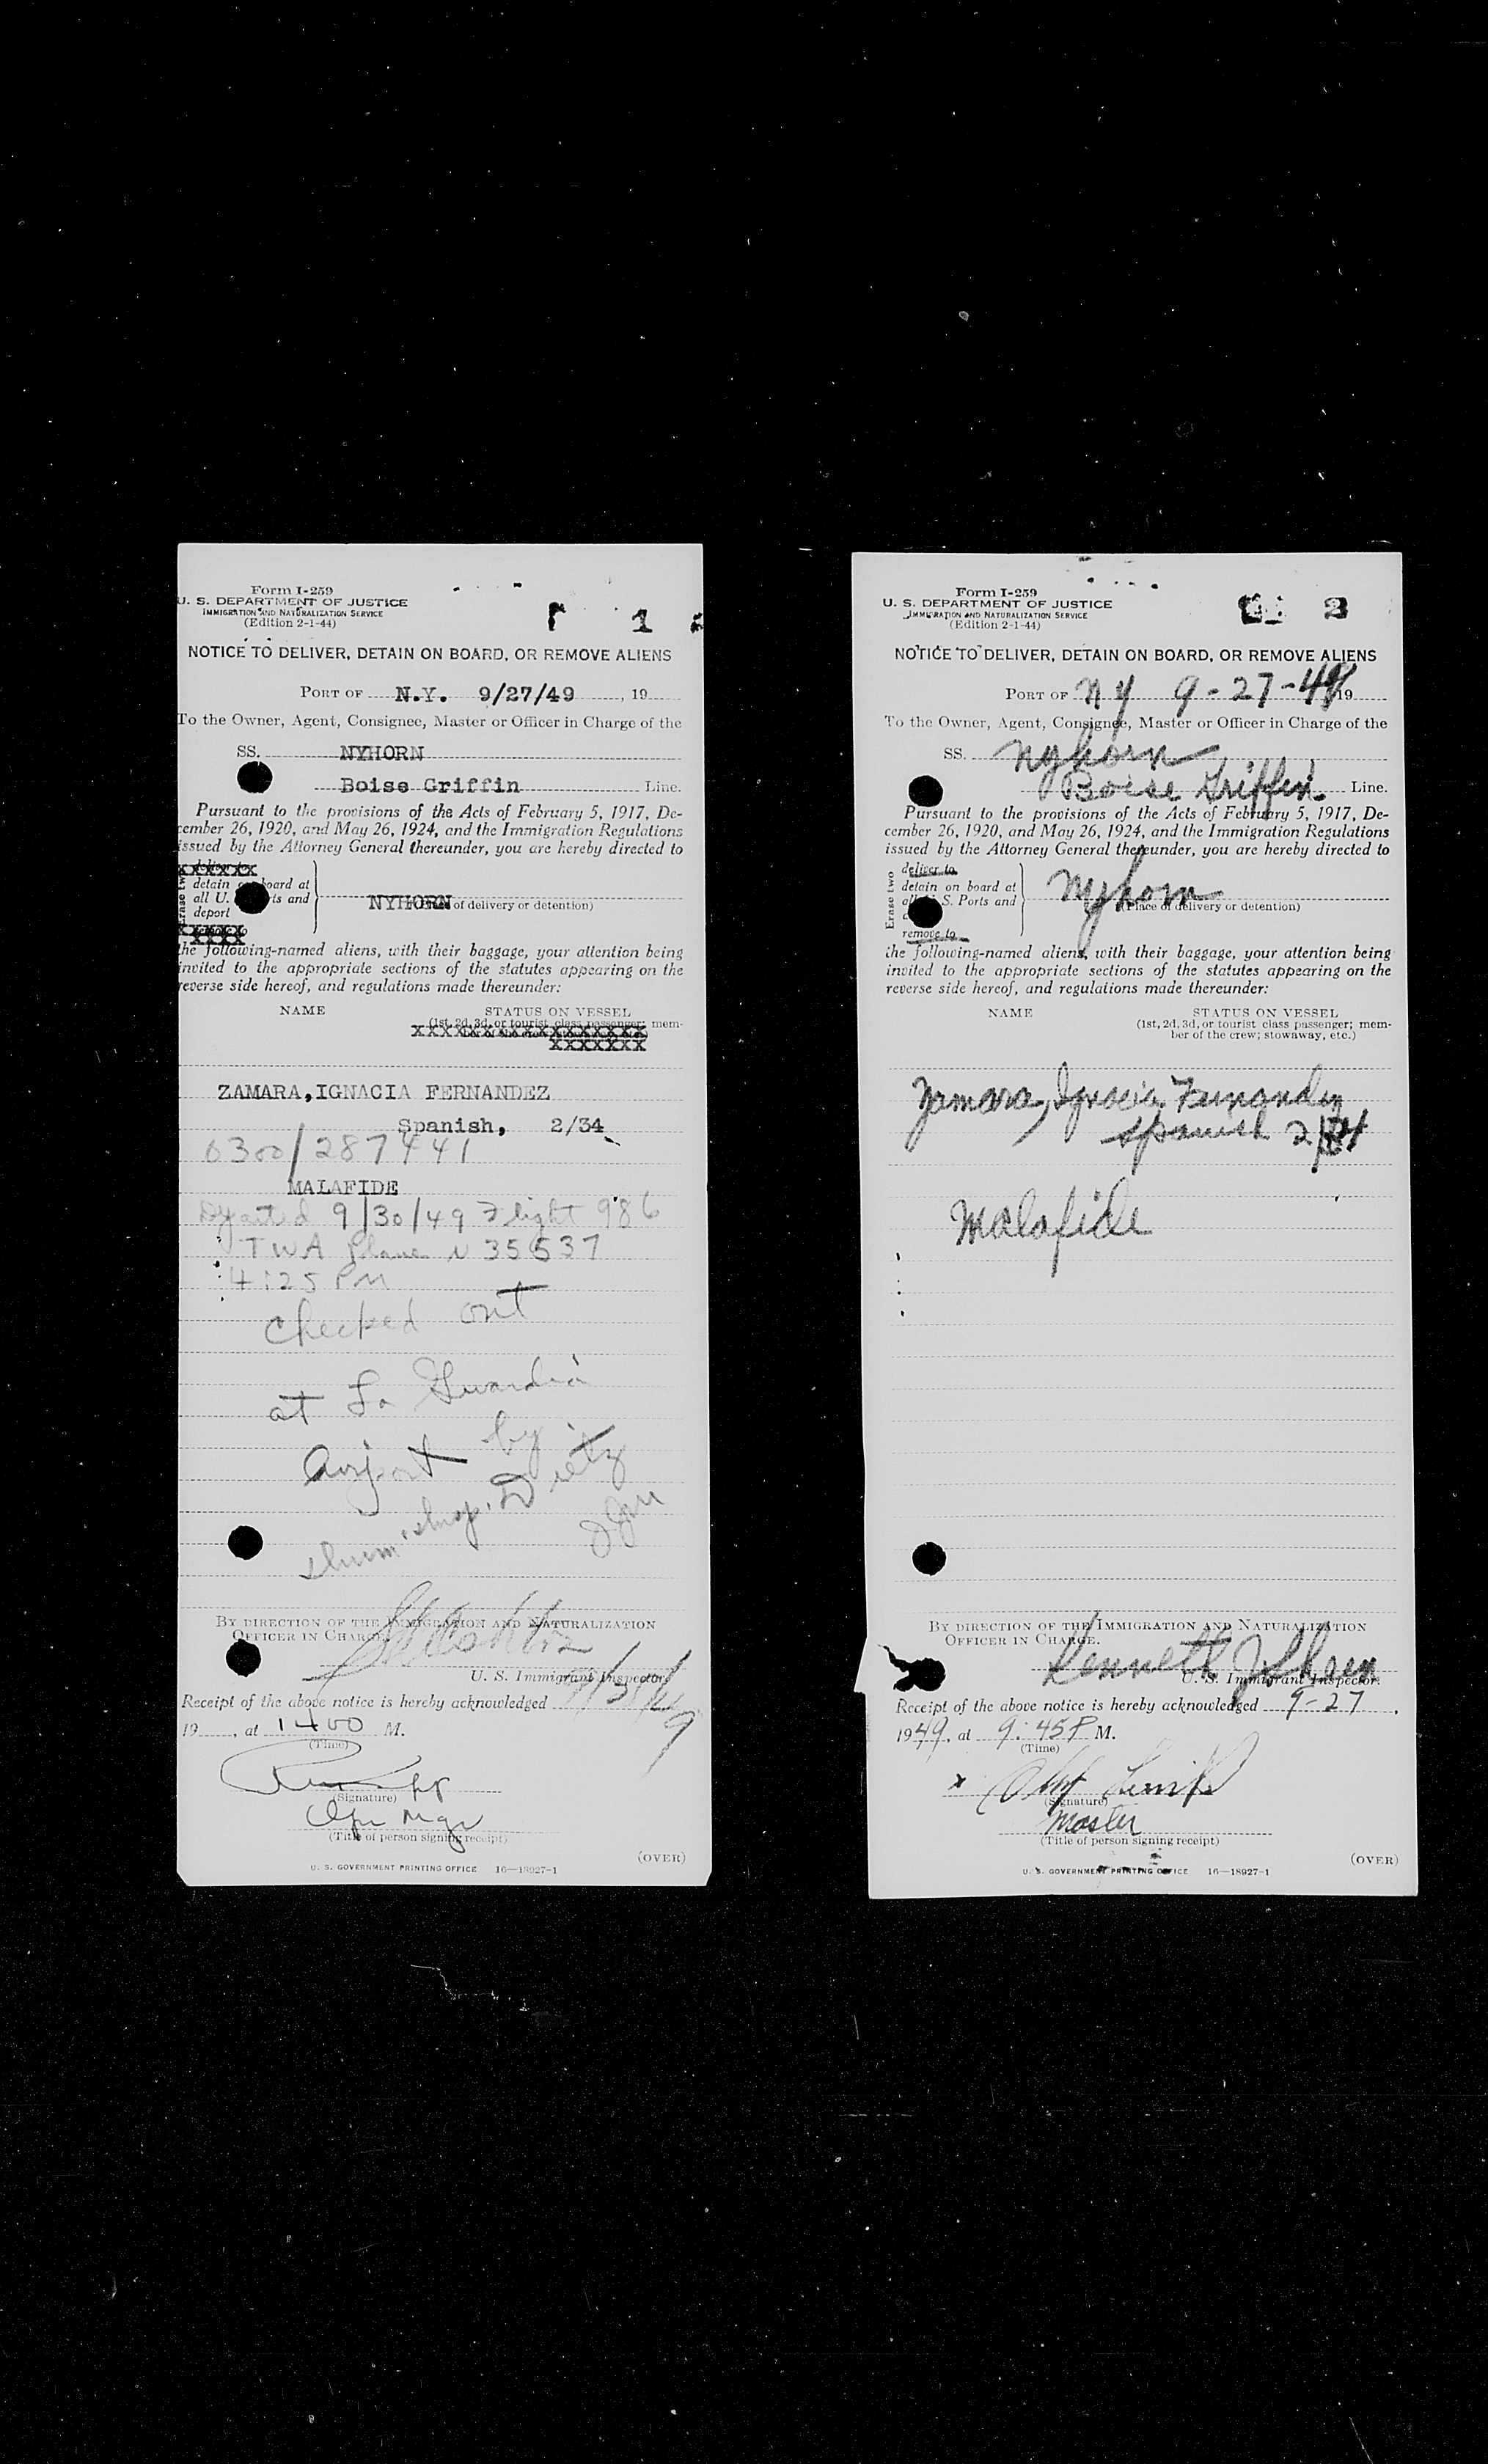 Form I-259
U. S. DEPARTMENT OF JUSTICE
IMMIGRATION AND NATURALIZATION SERVICE
(Edition 2-1-44)
1
NOTICE TO DELIVER, DETAIN ON BOARD, OR REMOVE ALIENS
PORT OF N.Y. 9/27/49, 19
To the Owner, Agent, Consignee, Master or Officer in Charge of the
SS. NYHORN
Boise Griffin Line.
Pursuant to the provisions of the Acts of February 5, 1917, De-
cember 26, 1920, and May 26, 1924, and the Immigration Regulations
issued by the Attorney General thereunder, you are hereby directed to
deliver to
Erase two
detain on board at
all U. ts and
deport
NYHORN
of delivery or detention)
remove to
the following-named aliens, with their baggage, your attention being
invited to the appropriate sections of the statutes appearing on the
reverse side hereof, and regulations made thereunder:
NAME STATUS ON VESSEL
(1st, 2d, 3d, or tourist class passenger; mem-
XXXXXXX
ZAMARA, IGNACIA FERNANDEZ
Spanish, 2/34
0300/287441
MALAFIDE
Departed 9/30/49 Flight 986
TWA plane N 35537
4:25 PM
checked out
at La Guardia
Airport by
Dietz
BY DIRECTION OF THE IMMIGRATION AND NATURALIZATION
OFFICER IN CHARGE.
U. S. Immigrant Inspector.
Receipt of the above notice is hereby acknowledged
19, at 1400 M.
(Time)
(Signature)
Opr Mgr
(Title of person signing receipt)
(OVER)
U. S. GOVERNMENT PRINTING OFFICE 16—18927-1
Form I-259
U. S. DEPARTMENT OF JUSTICE
IMMIGRATION AND NATURALIZATION SERVICE
(Edition 2-1-44)
2
NOTICE TO DELIVER, DETAIN ON BOARD, OR REMOVE ALIENS
PORT OF N Y 9-27-49 19
To the Owner, Agent, Consignee, Master or Officer in Charge of the
SS. Nyhorn
Boise Griffin Line.
Pursuant to the provisions of the Acts of February 5, 1917, De-
cember 26, 1920, and May 26, 1924, and the Immigration Regulations
issued by the Attorney General thereunder, you are hereby directed to
Erase two
deliver to
detain on board at
S. Ports and
Nyhorn
(Place of delivery or detention)
remove to
the following-named aliens, with their baggage, your attention being
invited to the appropriate sections of the statutes appearing on the
reverse side hereof, and regulations made thereunder:
NAME STATUS ON VESSEL
(1st, 2d, 3d, or tourist class passenger; mem-
ber of the crew; stowaway, etc.)
Zamara, Ignacia Fernandez
Spanish 2/34
Malafide
BY DIRECTION OF THE IMMIGRATION AND NATURALIZATION
OFFICER IN CHARGE.
Kenneth J
U. S. Immigrant Inspector.
Receipt of the above notice is hereby acknowledged 9-27,
1949, at 9:45 P M.
(Time)
x
(Signature)
Master
(Title of person signing receipt)
(OVER)
U. S. GOVERNMENT PRINTING OFFICE 16—18927-1